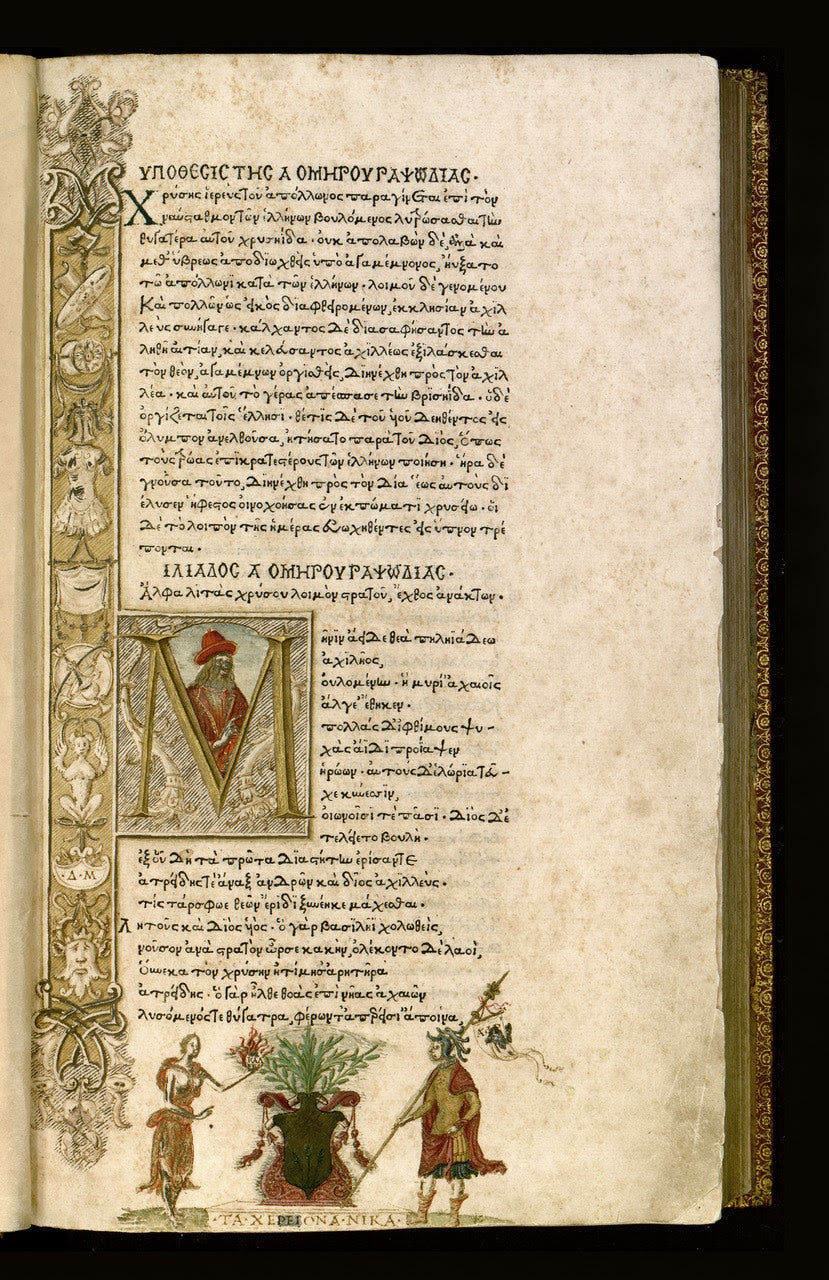 ΥΠΟΘΕCΙC ΤΗC Α ΟΜΗΡΟΥ ΡΑΨΩΔΙΑC·
Χρύσης ἱερεὺς τοῦ ἀπόλλωνος παραγίνεται ἐπὶ τὸν
ναύσταθμον τῶν ἑλλήνων βουλόμενος λυτρώσασθαι τὴν
θυγατέρα αὐτοῦ χρυσηίδα· οὐκ ἀπολαβὼν δὲ, ἀλλὰ καὶ
μεθ' ὕβρεως ἀποδιωχθεὶς ὑπὸ ἀγαμέμνονος, ηὔξατο
τῶ ἀπόλλωνι κατὰ τῶν ἑλλήνων· λοιμοῦ δὲ γενομένου
Καὶ πολλῶν ὡς εἰκὸς διαφθειρομένων, ἐκκλησίαν ἀχιλ
λεὺς συνήγαγε· κάλχαντος δὲ διασαφήσαντος τὴν ἀ
ληθῆ αἰτίαν, καὶ κελεύσαντος ἀχιλλέως ἐξιλάσκεσθαι
τὸν θεὸν, ἀγαμέμνων ὀργισθεὶς, διηνέχθη πρὸς τὸν ἀχιλ
λέα· καὶ αὐτοῦ τὸ γέρας ἀπέσπασε τὴν βρισηίδα· ὁ δὲ
ὀργίζεται τοῖς ἕλλησι· θέτις δὲ τοῦ υἱοῦ δεηθέντος εἰς
ὄλυμπον ἀνελθοῦσα, ἠτήσατο παρὰ τοῦ διὸς, ὅπως
τοὺς τρῶας ἐπικρατεστέρους τῶν ἑλλήνων ποιήση· ἥρα δὲ
γνοῦσα τοῦτο, διηνέχθη πρὸς τὸν δία· ἕως αὐτοὺς δι
έλυσεν ἥφαιστος οἰνοχοήσας ἐν ἐκπώματι χρυσέω· οἱ
δὲ τὸ λοιπὸν τῆς ἡμέρας εὐωχηθέντες εἰς ὕπνον τρέ
πονται·
ΙΛΙΑΔΟC Α ΟΜΗΡΟΥ ΡΑΨΩΔΙΑC·
Ἄλφα λιτὰς χρύσου λοιμὸν στρατοῦ, ἔχθος ἀνάκτων·
Μῆνιν ἄειδε θεὰ πηληιάδεω
ἀχιλῆος,
οὐλομένην· ἣ μυρί' ἀχαιοῖς
ἄλγε' ἔθηκεν·
πολλὰς δ' ἰφθίμους ψυ-
χὰς ἄϊδι προΐαψεν
ἡρώων· αὐτοὺς δ' ἑλώρια τεῦ-
χε κύνεσσιν,
οἰωνοῖσί τε πᾶσι· διὸς δ' ἐ
τελείετο βουλή·
ἐξ οὗ δὴ τὰ πρῶτα διαστήτην ἐρίσαντε
ἀτρείδης τε ἄναξ ἀνδρῶν καὶ δῖος ἀχιλλεύς·
τίς τάρ σφωε θεῶν ἔριδι ξυνέηκε μάχεσθαι·
Λητοῦς καὶ διὸς υἱός· ὁ γὰρ βασιλῆι χολωθεὶς,
νοῦσον ἀνὰ στρατὸν ὦρσε κακὴν, ὀλέκοντο δὲ λαοὶ,
Οὕνεκα τὸν χρύσην ἠτίμησ' ἀρητῆρα
ἀτρείδης· ὁ γὰρ ἦλθε θοὰς ἐπὶ νῆας ἀχαιῶν
λυσόμενός τε θύγατρα, φέρων τ' ἀπερείσι' ἄποινα,
·Δ·Μ
·ΤΑ·ΧΕΡΕΙΟΝΑ·ΝΙΚΑ·